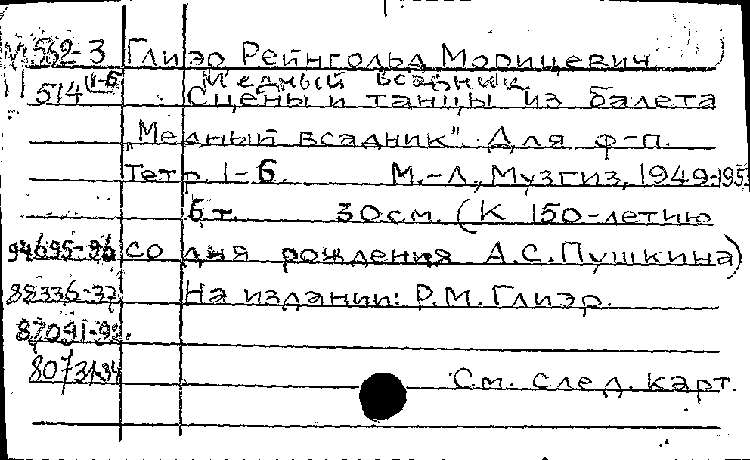 М 562-3 Глиэр Рейнгольд Морицевич
Медный всадник
514 (1-6) Сцены и танцы из балета
„Медный всадник". Для ф-п.
Тетр. 1-6. М.-Л., Музгиз, 1949-1953
6 т. 30см. (К 150-летию
94695-96 со дня рождения А.С.Пушкина)
88336-37 На издании: Р.М.Глиэр.
87091-92.
80731-34 См. след. карт.